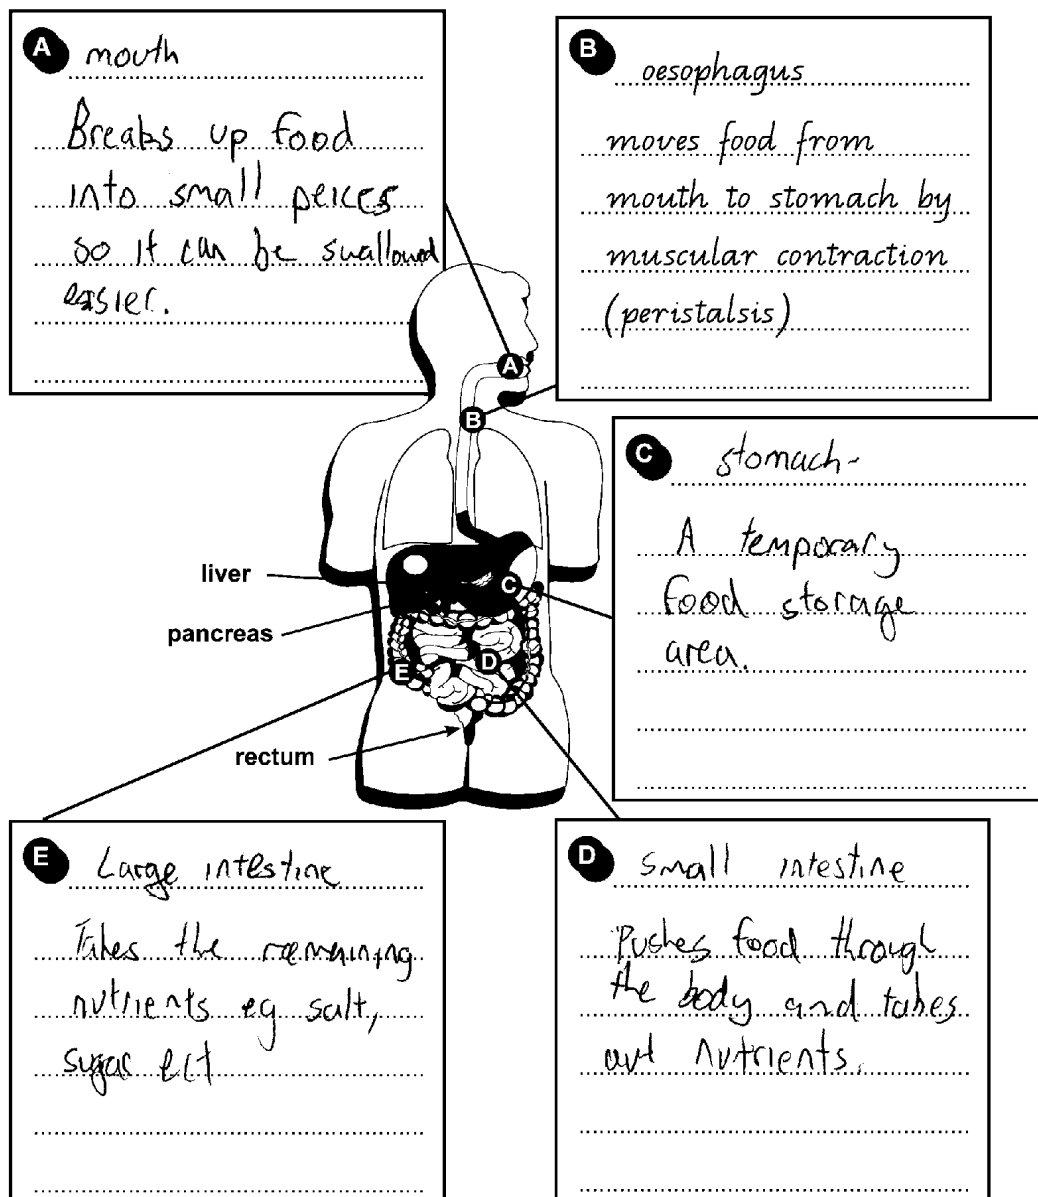 A mouth
Breaks up food
into small peices
so it can be swallowed
easier.
B oesophagus
moves food from
mouth to stomach by
muscular contraction
(peristalsis)
A
B
C stomach-
A temporary
food storage
area.
liver
C
pancreas
D
E
rectum
E Large intestine
Takes the remaining
nutrients eg salt,
sugar ect
D small intestine
Pushes food through
the body and takes
out nutrients.